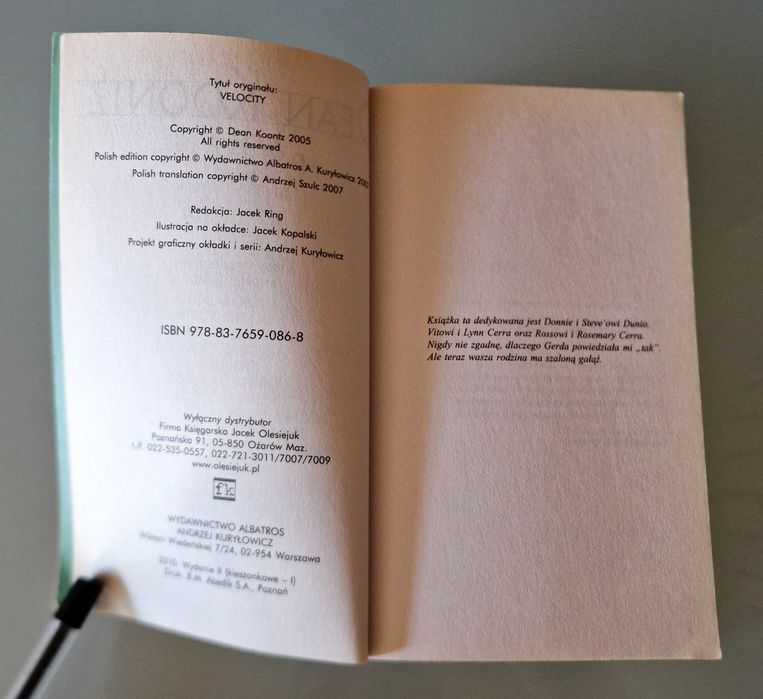 Tytuł oryginału:
VELOCITY
Copyright © Dean Koontz 2005
All rights reserved
Polish edition copyright © Wydawnictwo Albatros A. Kuryłowicz
Polish translation copyright © Andrzej Szulc 2007
Redakcja: Jacek Ring
Ilustracja na okładce: Jacek Kopalski
Projekt graficzny okładki i serii: Andrzej Kuryłowicz
ISBN 978-83-7659-086-8
Wyłączny dystrybutor
Firma Księgarska Jacek Olesiejuk
Poznańska 91, 05-850 Ożarów Maz.
t./f. 022-535-0557, 022-721-3011/7007/7009
www.olesiejuk.pl
fk
WYDAWNICTWO ALBATROS
ANDRZEJ KURYŁOWICZ
Wiktorii Wiedeńskiej 7/24, 02-954 Warszawa
2010. Wydanie II (kieszonkowe – I)
Druk: B.M. Abedik S.A., Poznań
Książka ta dedykowana jest Donnie i Steve'owi Dunio,
Vitowi i Lynn Cerra oraz Rossowi i Rosemary Cerra.
Nigdy nie zgadnę, dlaczego Gerda powiedziała mi „tak".
Ale teraz wasza rodzina ma szaloną gałąź.